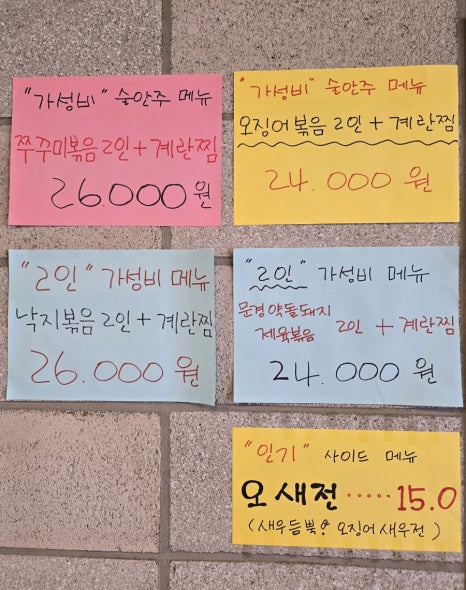 "가성비" 술안주 메뉴
쭈꾸미볶음 2인 + 계란찜
26.000원
"가성비" 술안주 메뉴
오징어볶음 2인 + 계란찜
24.000원
"2인" 가성비 메뉴
낙지볶음 2인 + 계란찜
26.000원
"2인" 가성비 메뉴
문경약돌돼지
제육볶음 2인 + 계란찜
24.000원
"인기" 사이드 메뉴
오새전 ····· 15.0
(새우듬뿍 오징어새우전)